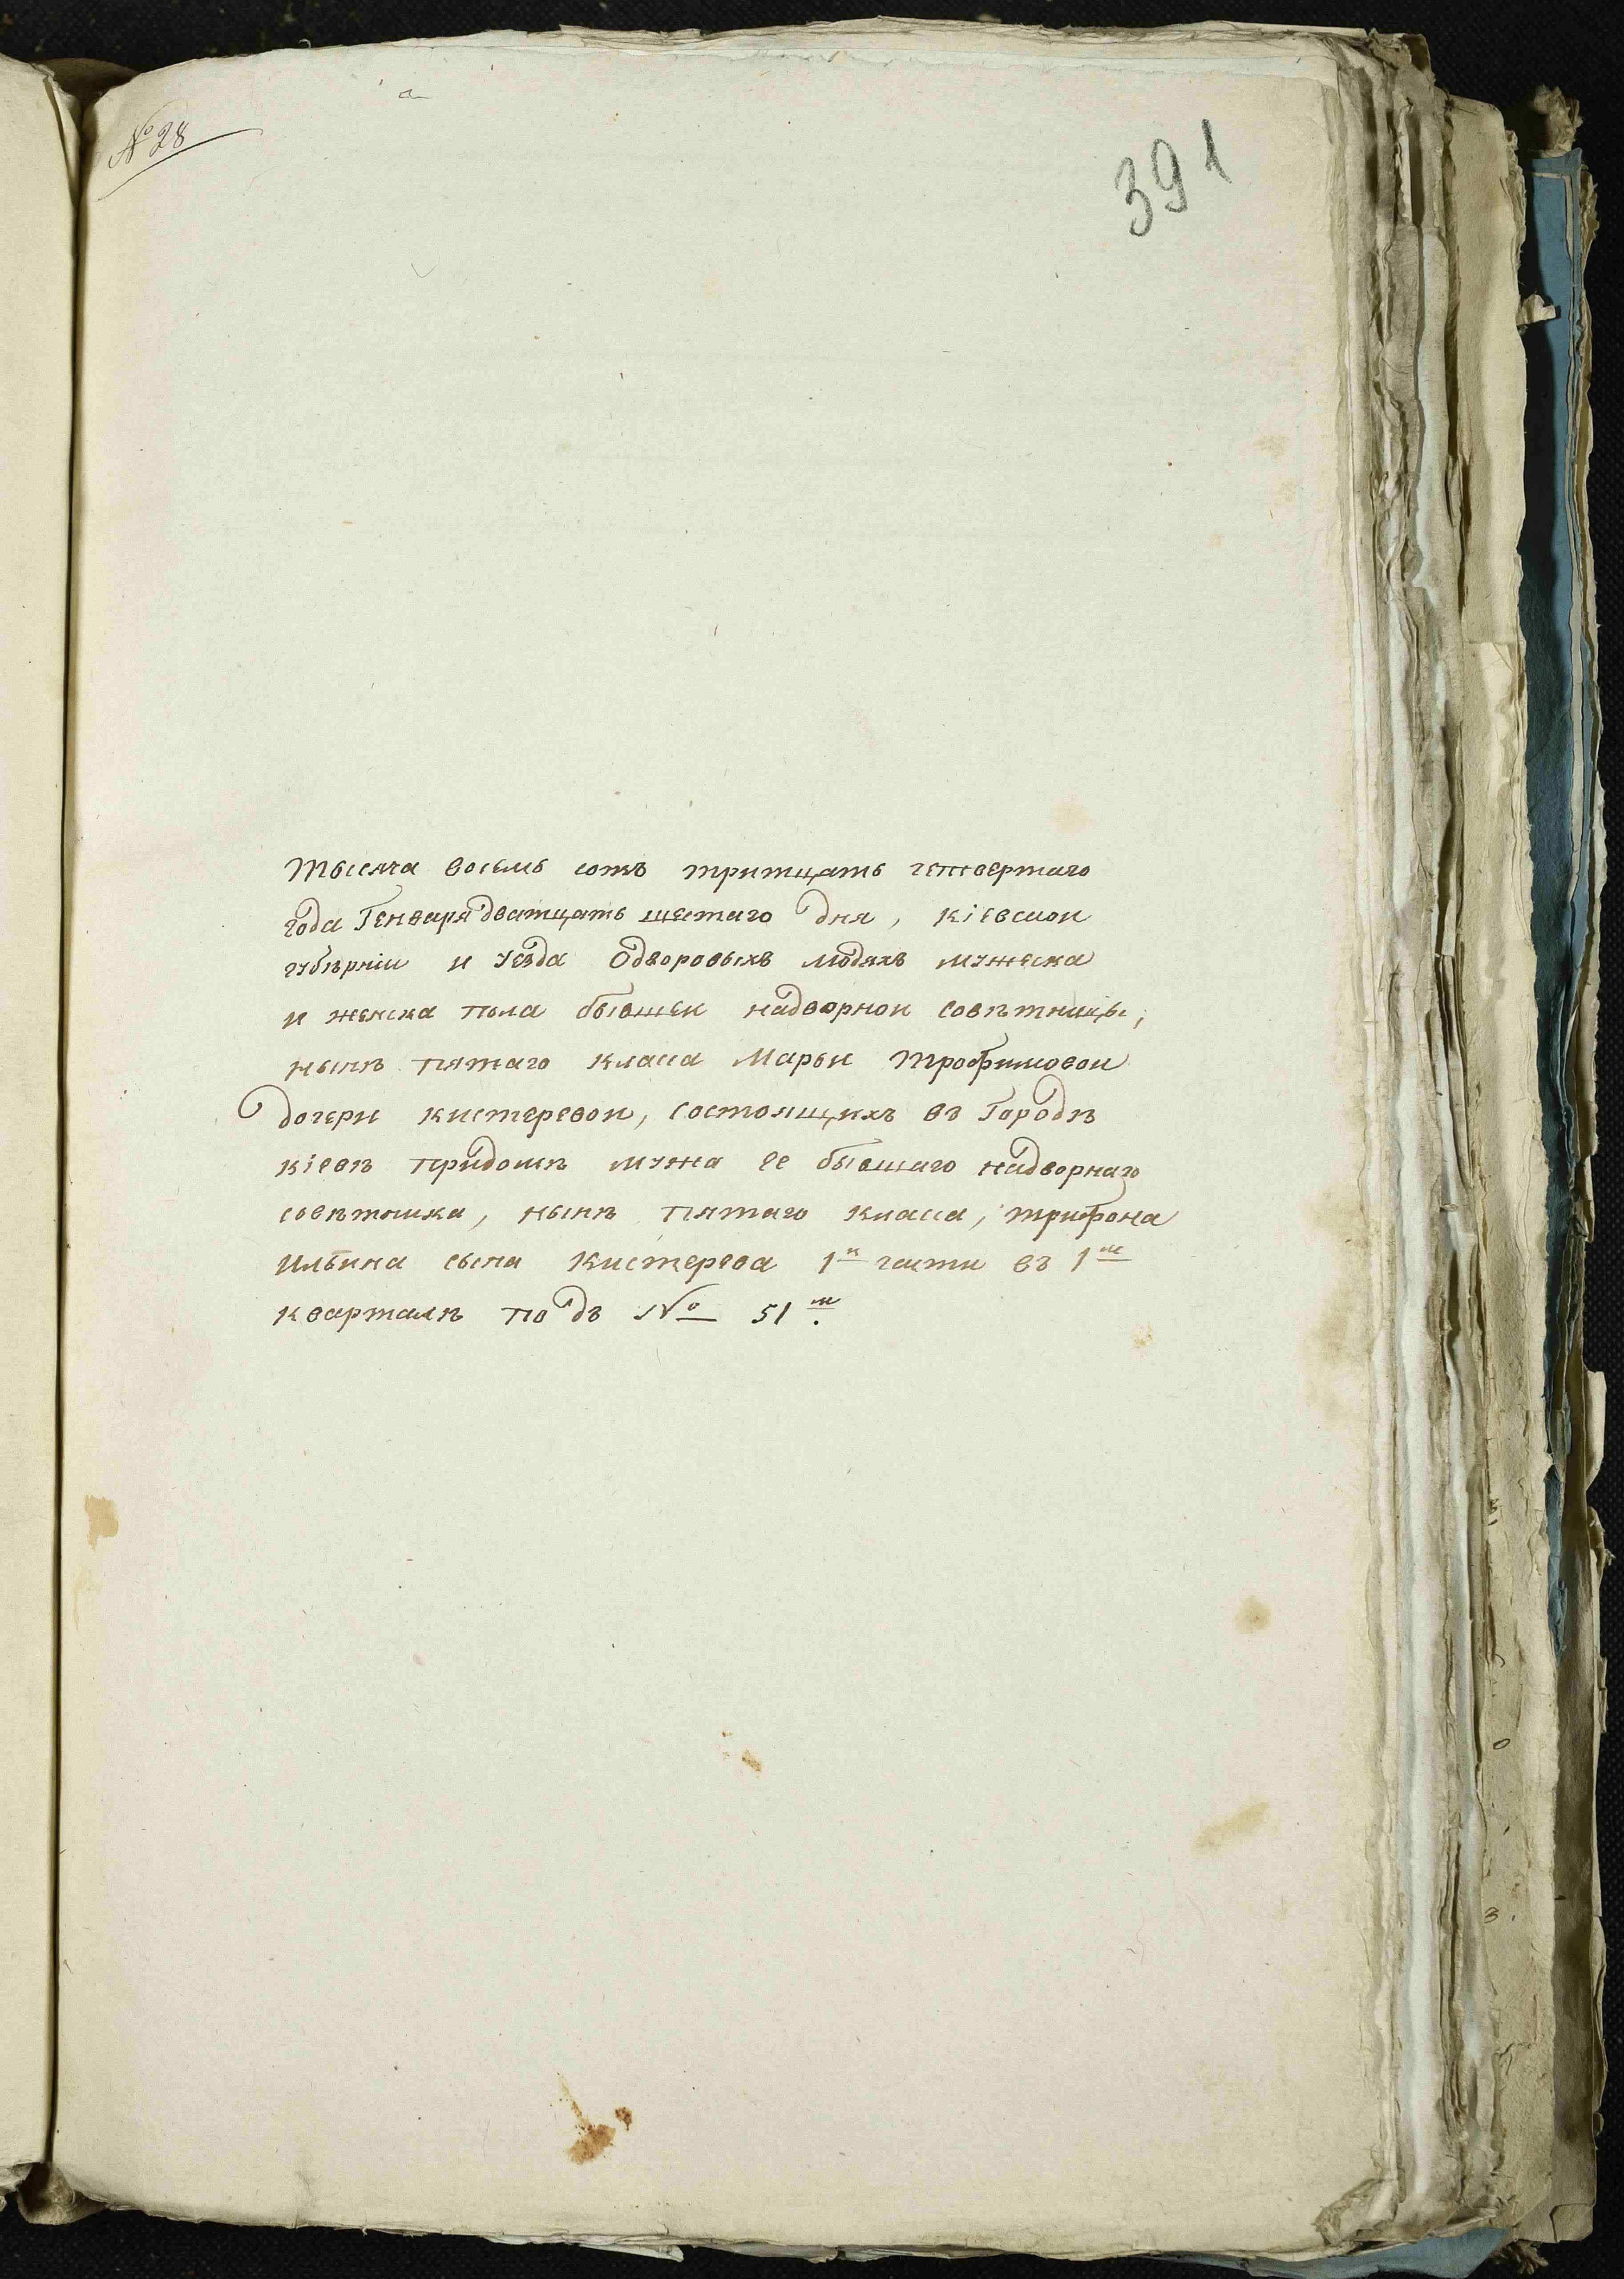 № 28
391
Тысяча восемь сотъ тритцать четвертаго
года Генваря дватцать шестаго дня, кіевской
губѣрніи и уезда Одворовыхъ людяхъ мужеска
и женска пола бывшеи надворнои совѣтницы,
нынѣ пятаго класса Марьи Трофимовои
дочери кистеревои, состоящихъ въ Городѣ
кіевѣ придомѣ мужа ее бывшаго надворнаго
совѣтника, нынѣ пятаго класса, трифона
Ильина сына Кистерева 1й части въ 1м
кварталѣ подъ № 51м.